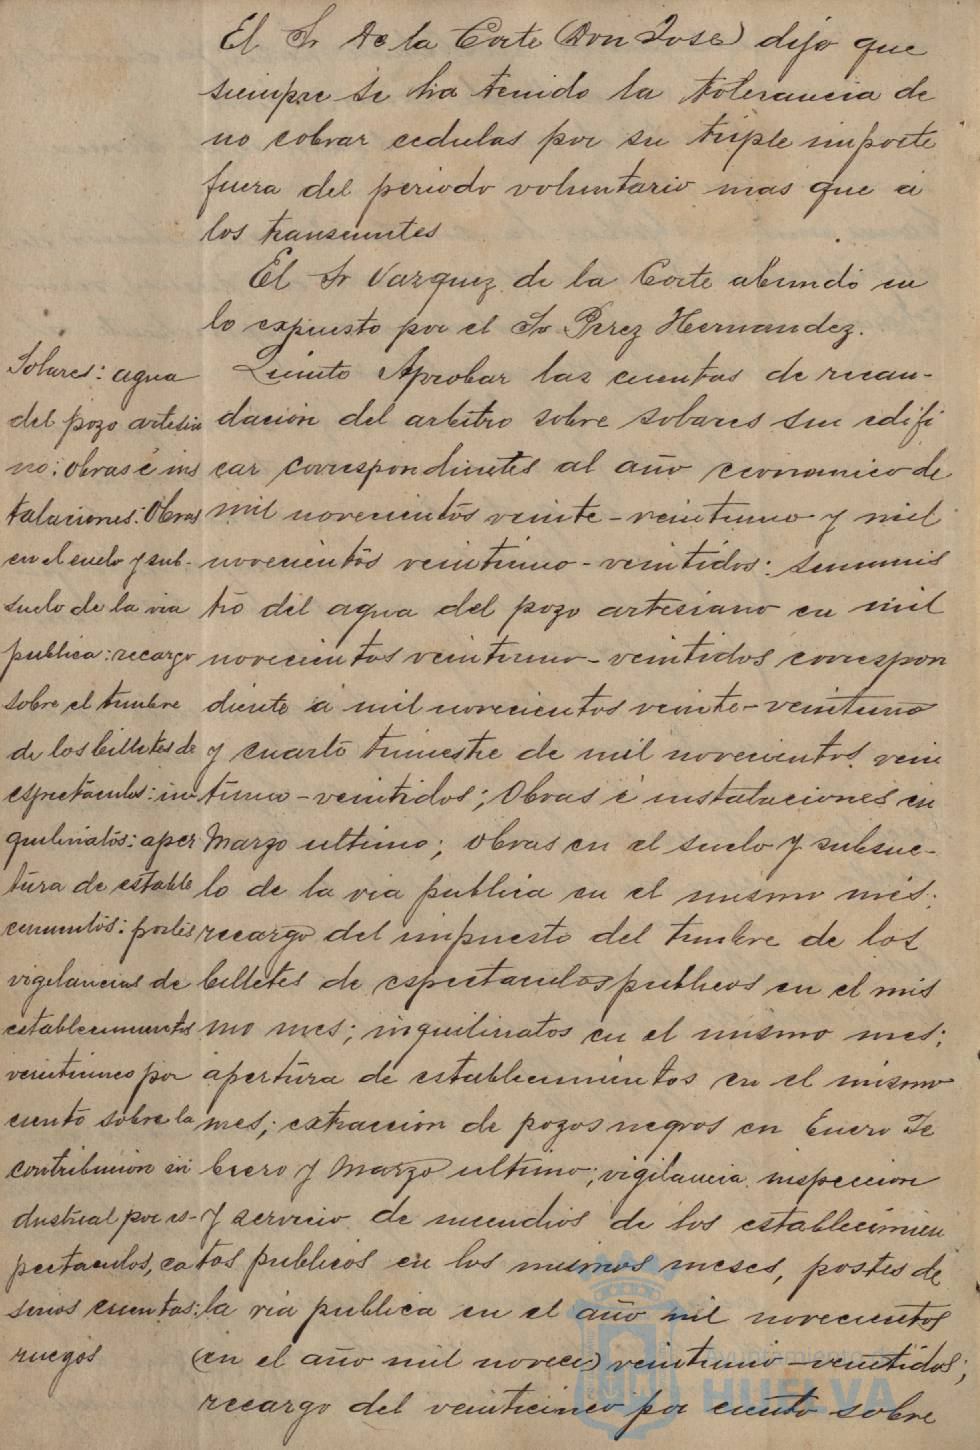 El Sr De la Corte (Don Jose) dijo que
siempre se ha tenido la tolerancia de
no cobrar cedulas por su triple importe
fuera del periodo voluntario mas que á
los transeuntes
El Sr Vazquez de la Corte abundó en
lo expuesto por el Sr Perez Hernandez.
Quinto Aprobar las cuentas de recau-
dación del arbitro sobre solares sin edifi
car correspondientes al año economico de
mil novecientos veinte-veintiuno y mil
novecientos veintiuno-veintidos: suminis
tró del agua del pozo artesiano en mil
novecientos veintiuno-veintidos correspon
diente á mil novecientos veinte-veintiuno
y cuarto trimestre de mil novecientos vein
tiuno-veintidos; Obras é instalaciones en
Marzo ultimo; obras en el suelo y subsue-
lo de la via publica en el mismo mes;
recargo del impuesto del timbre de los
billetes de espectaculos publicos en el mis
mo mes; inquilinatos en el mismo mes;
apertura de establecimientos en el mismo
mes; extracción de pozos negros en Enero Fe
brero y Marzo ultimo; vigilancia inspeccion
y servicio de incendios de los establecimien
tos publicos en los mismos meses, postes de
la via publica en el año mil novecientos
(en el año mil novec) veintiuno-veintidos;
recargo del veinticinco por ciento sobre
Solares: agua
del pozo artesia
no: obras é ins
talaciones: Obras
en el suelo y sub-
suelo de la via
publica: recargo
sobre el timbre
de los billetes de
espectaculos: in-
quilinatos: aper
tura de estable
cimientos: postes
vigilancias de
establecimientos
veinticinco por
ciento sobre la
contribucion in
dustrial por es-
pectaculos, ca
sinos cuentas:
ruegos
Ayuntamiento de
HUELVA